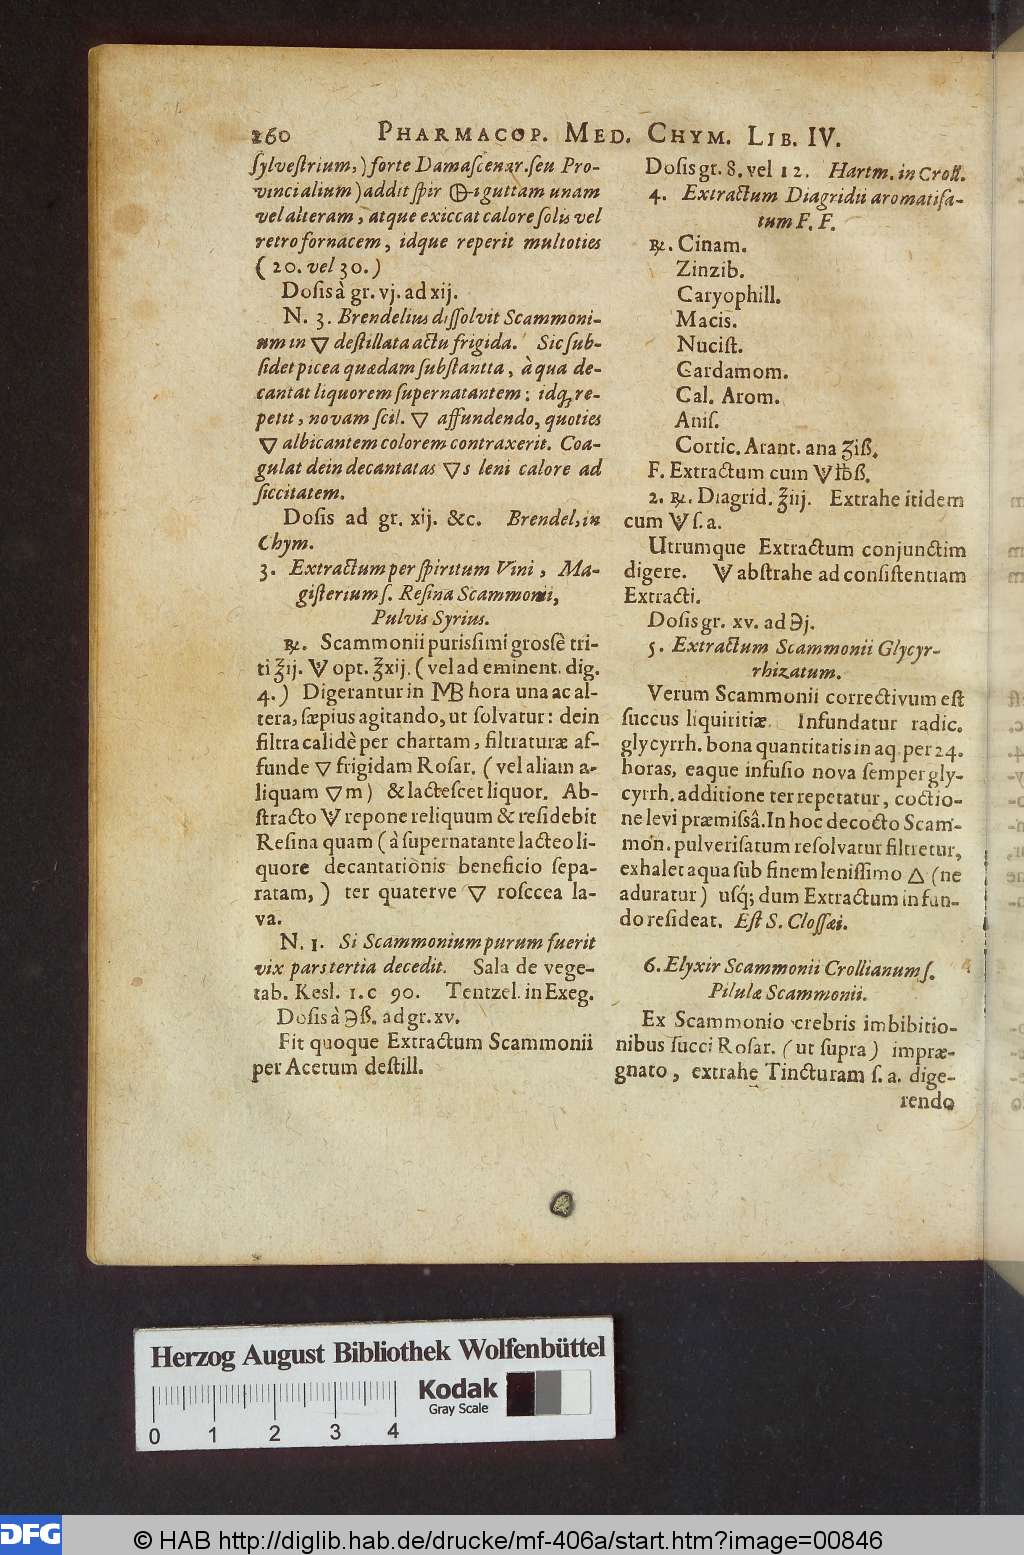 260 PHARMACOP. MED. CHYM. LIB. IV.
ſylveſtrium,) forte Damaſcenar. ſeu Pro-
vincialium) addit ſpir 🜨-i guttam unam
vel alteram, atque exiccat calore ſolis vel
retro fornacem, idque reperit multoties
(20. vel 30.)
Doſis à gr. vj. ad xij.
N. 3. Brendelius diſſolvit Scammoni-
um in 🜄 deſtillata actu frigida. Sic ſub-
ſidet picea quædam ſubſtantia, à qua de-
cantat liquorem ſupernatantem: idq; re-
petit, novam ſcil. 🜄 affundendo, quoties
🜄 albicantem colorem contraxerit. Coa-
gulat dein decantatas 🜄s leni calore ad
ſiccitatem.
Doſis ad gr. xij. &c. Brendel, in
Chym.
3. Extractum per ſpiritum Vini, Ma-
giſterium ſ. Reſina Scammonii,
Pulvis Syrius.
℞. Scammonii purissimi grossè tri-
ti ℥ij. 🜈 opt. ℥xij. (vel ad eminent. dig.
4.) Digerantur in MB hora una ac al-
tera, ſæpius agitando, ut ſolvatur: dein
filtra calidè per chartam, filtraturæ af-
funde 🜄 frigidam Roſar. (vel aliam a-
liquam 🜄m) & lacteſcet liquor. Ab-
ſtracto 🜈 repone reliquum & reſidebit
Reſina quam (à ſupernatante lacteo li-
quore decantationis beneficio ſepa-
ratam,) ter quaterve 🜄 roſccea la-
va.
N. 1. Si Scammonium purum fuerit
vix pars tertia decedit. Sala de vege-
tab. Kesl. 1. c 90. Tentzel. in Exeg.
Doſis à ℈ß. ad gr. xv.
Fit quoque Extractum Scammonii
per Acetum deſtill.
Doſis gr. 8. vel 12. Hartm. in Croll.
4. Extractum Diagridii aromatiſa-
tum F. F.
℞. Cinam.
Zinzib.
Caryophill.
Macis.
Nuciſt.
Cardamom.
Cal. Arom.
Aniſ.
Cortic. Arant. ana ʒiß.
F. Extractum cum 🜈 ℔ß.
2. ℞. Diagrid. ℥iij. Extrahe itidem
cum 🜈 ſ. a.
Utrumque Extractum conjunctim
digere. 🜈 abſtrahe ad conſiſtentiam
Extracti.
Doſis gr. xv. ad ℈j.
5. Extractum Scammonii Glycyr-
rhizatum.
Verum Scammonii correctivum eſt
ſuccus liquiritiæ. Infundatur radic.
glycyrrh. bona quantitatis in aq. per 24.
horas, eaque infuſio nova ſemper gly-
cyrrh. additione ter repetatur, coctio-
ne levi præmiſsâ. In hoc decocto Scam-
mon. pulveriſatum reſolvatur filtretur,
exhalet aqua ſub finem leniſſimo 🜂 (ne
aduratur) uſq; dum Extractum in fun-
do reſideat. Eſt S. Cloſſæi.
6. Elyxir Scammonii Crollianum ſ.
Pilulæ Scammonii.
Ex Scammonio crebris imbibitio-
nibus ſucci Roſar. (ut ſupra) impræ-
gnato, extrahe Tincturam ſ. a. dige-
rendo
Herzog August Bibliothek Wolfenbüttel
Kodak
Gray Scale
0 1 2 3 4
DFG
© HAB http://diglib.hab.de/drucke/mf-406a/start.htm?image=00846